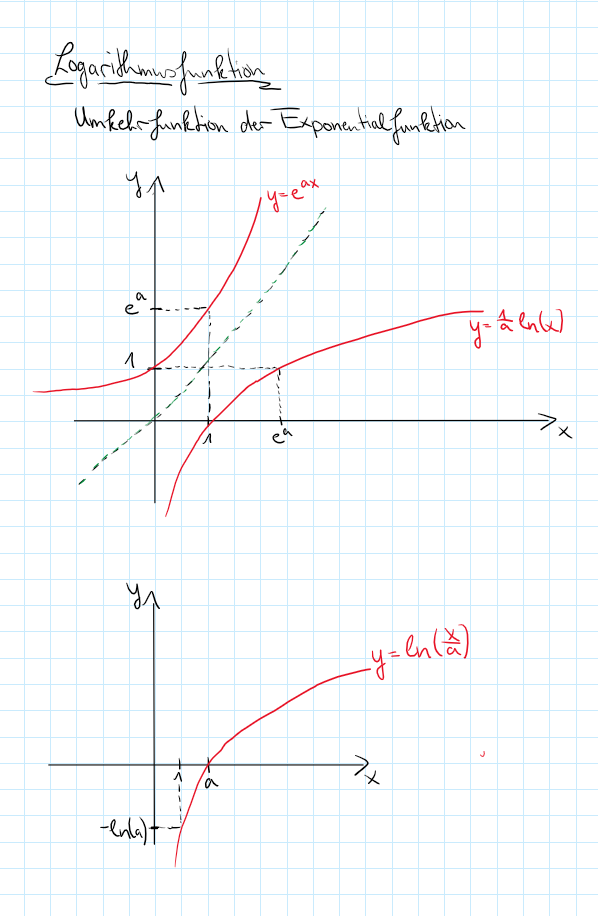 Logarithmusfunktion
Umkehrfunktion der Exponentialfunktion
y
y=e^{ax}
e^a
y=\frac{1}{a} ln(x)
1
1
e^a
x
y
y=ln(\frac{x}{a})
1
a
x
-ln(a)